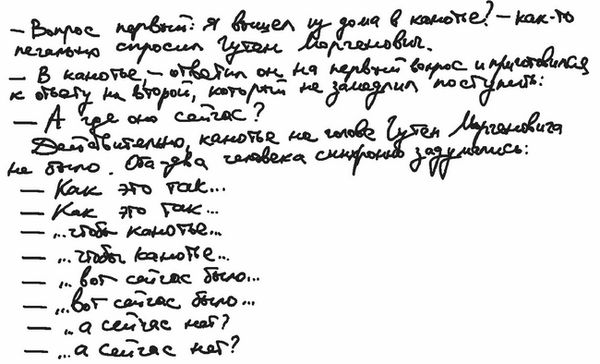 – Вопрос первый: я вышел из дома в канотье? – как-то
печально спросил Гутен Моргенович.
– В канотье, – ответил он на первый вопрос и приготовился
к ответу на второй, который не замедлил поступить:
– А где оно сейчас?
Действительно, канотье на голове Гутен Моргеновича
не было. Оба-два человека синхронно задумались:
– Как это так...
– Как это так...
– ...чтобы канотье...
– ...чтобы канотье...
– ...вот сейчас было...
– ...вот сейчас было...
– ...а сейчас нет?
– ...а сейчас нет?